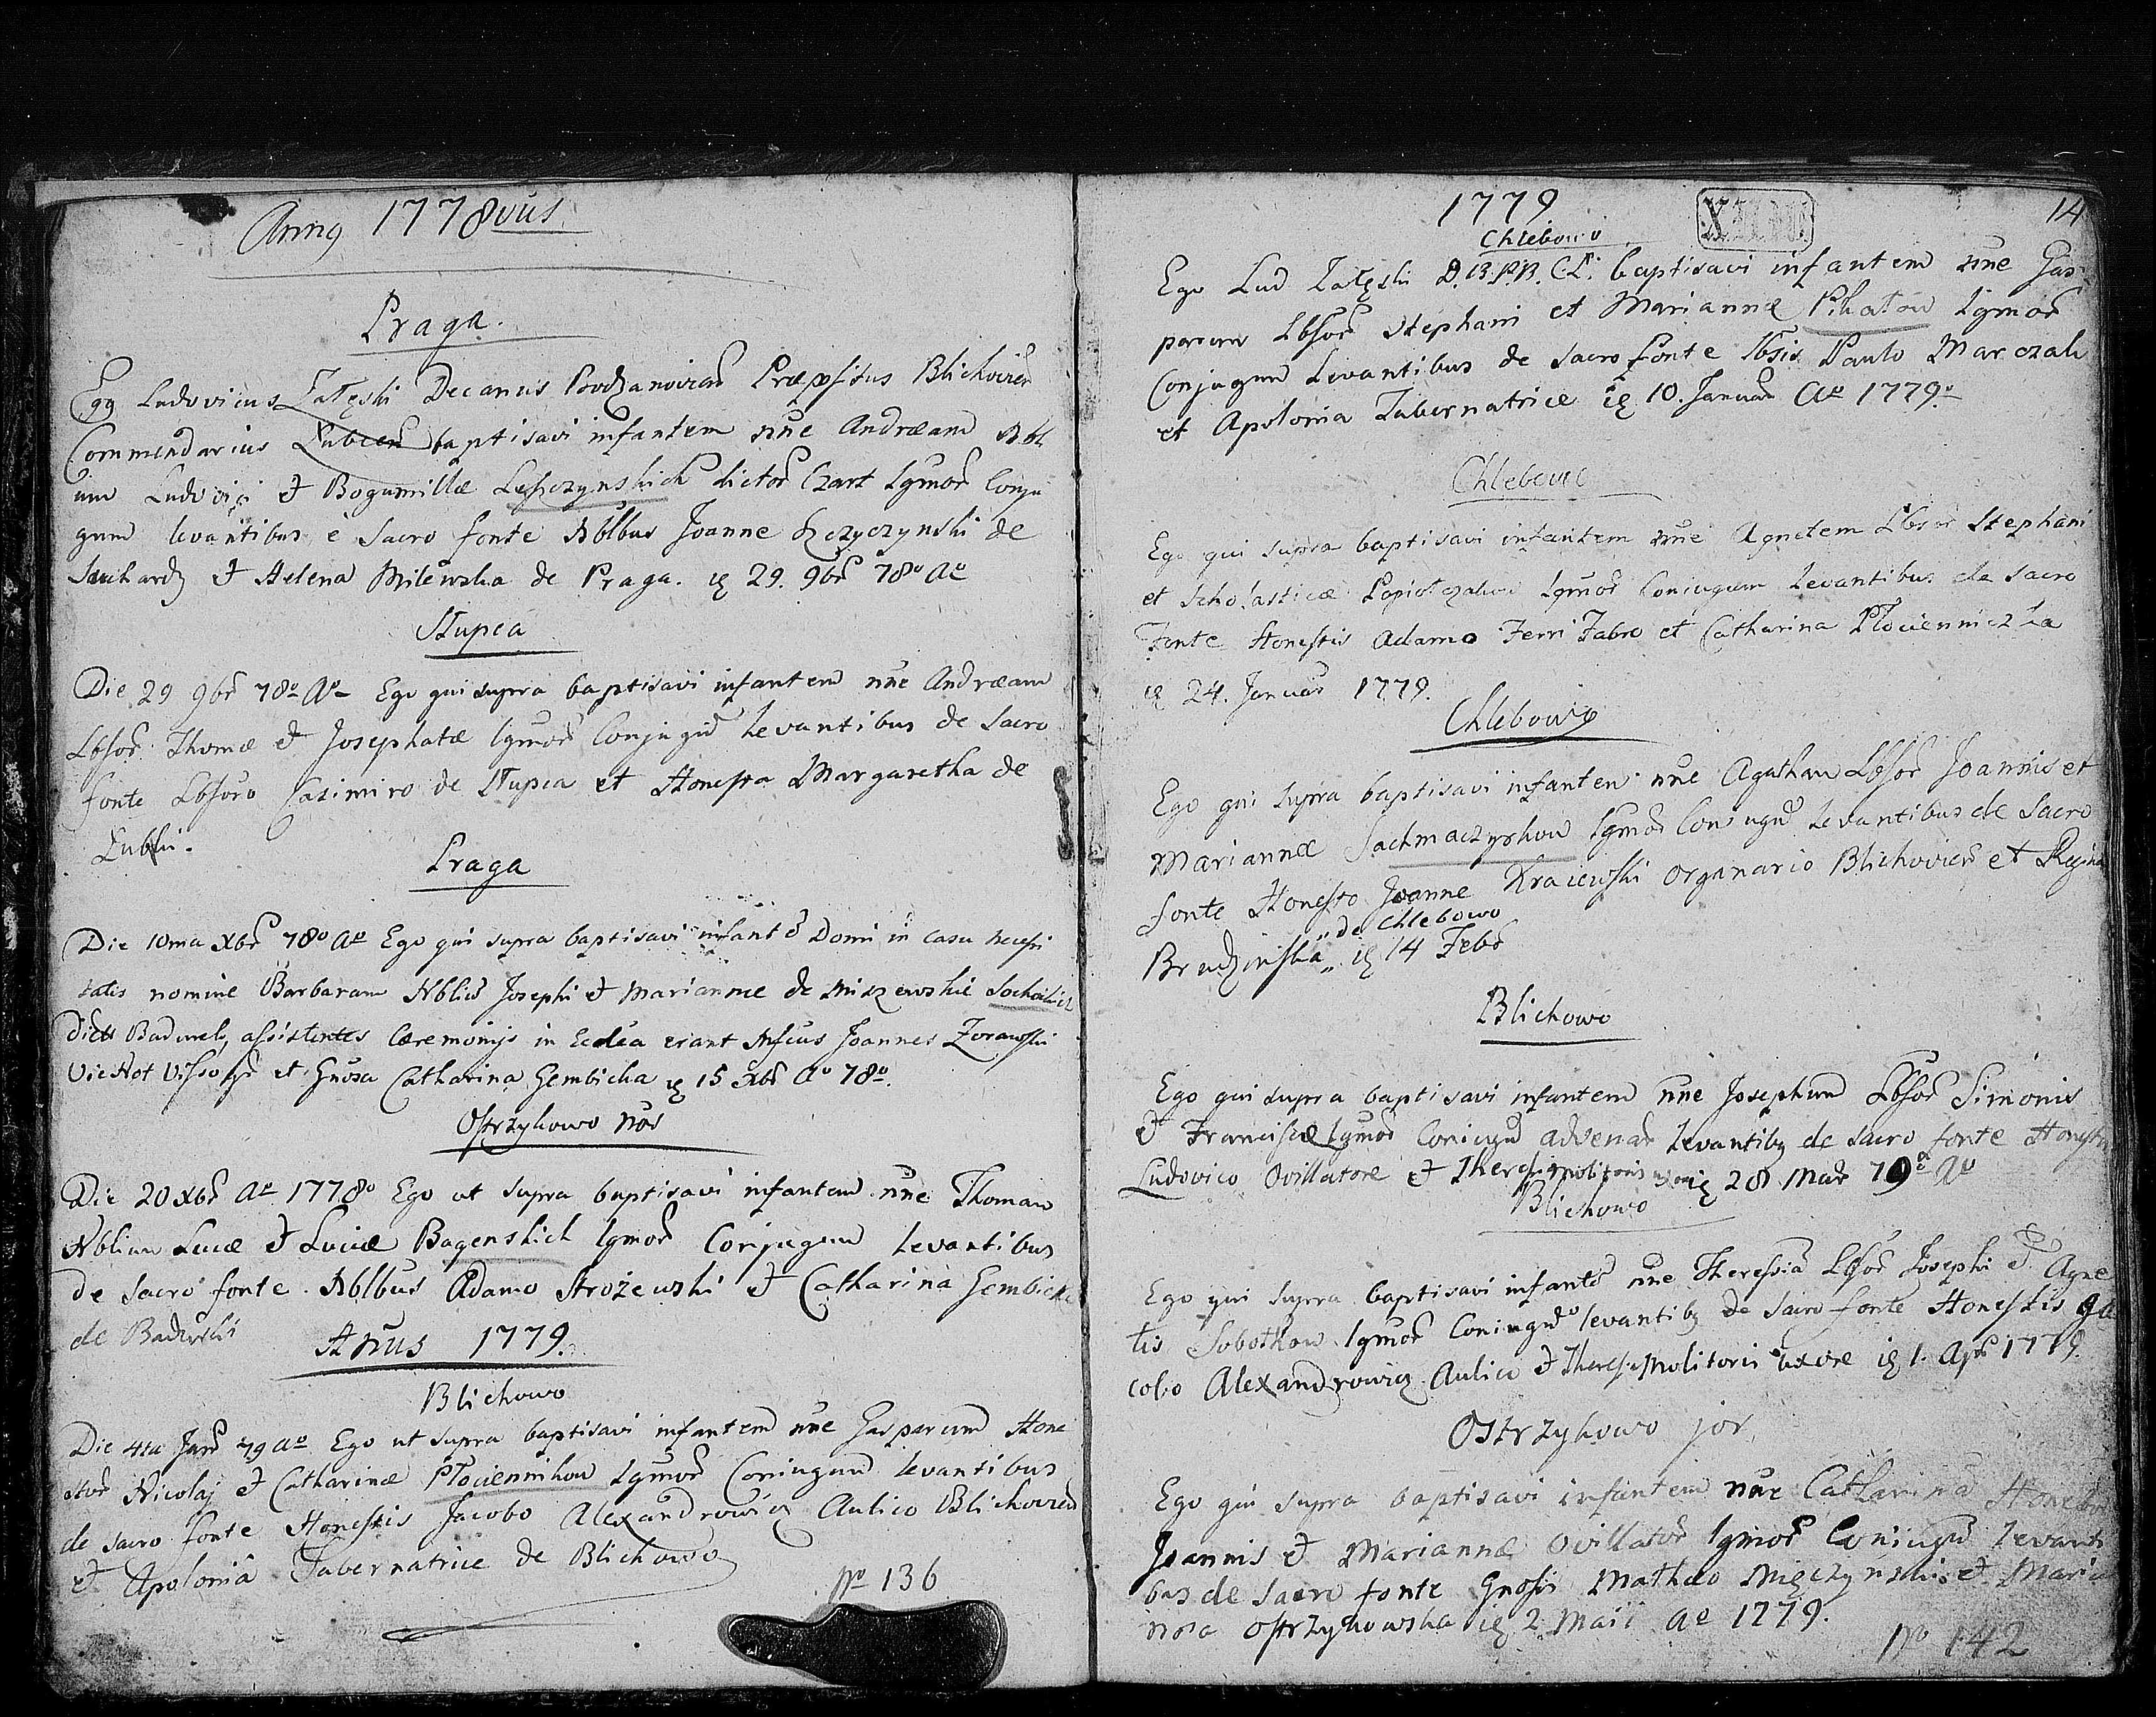 Anno 1778vus
Praga.
Ego Ludovicus Załęski Decanus Præpositus Blichovien
Commendarius baptisavi infantem nne Andræam Nbl
ium Ludovici et Bogumillæ Leszczynskich dictor Czart Lgmor Conju
gum levantibus è Sacro fonte Nblbus Joanne de
et Helena Milewska de Praga. ię 29. 9br 78o Ao
Słupca
Die 29 9br 78o Ao Ego qui supra baptisavi infantem nne Andræam
Lbsor Thomæ et Josephatæ lgmor Conjugū Levantibus de Sacro
fonte Lbsoro Casimiro de Słupca et Honesta Margaretha de
Praga
Die 10ma Xbr 78o Ao Ego qui supra baptisavi Domi in casu necessi
tatis nomine Barbaram Nbliū Josephi et Mariannæ de
assistentes Cæremonijs in erant Joannes Zorawski
et Gnosa Catharina Gembicka ię 15 Xbr Ao 78o.
Ostrzykowo
Die 20 Xbr Ao 1778o Ego ut supra baptisavi infantem nne Thomam
Nblium Lucæ et Luciæ Bagenskich lgmor Conjugum levantibus
de Sacro fonte Nblbus Adamo Strożewski et Catharina Gembicka
de
Anus 1779.
Blichowo
Die 4ta Janr 79 Ao Ego ut supra baptisavi infantem nne Gasparum Hone
stor Nicolaj et Catharinæ Płocienników Lgmor Coniugum levantibus
de sacro fonte Honestis Jacobo Alexandrowicz Aulico Blichovien
et Apolonia Tabernatrice de Blichowo
No 136
1779
14
Chlebowo
Ego Lud Załęski D.B.P.B.C.Ł. baptisavi infantem nne Gas
parum Lbsor Stephani et Mariannæ Lgmor
Conjugum Levantibus de Sacro fonte Paulo Marczak
et Apolonia Tabernatrice ię 10. Januar Ao 1779o
Chlebowo
Ego qui supra baptisavi infantem nne Agnetem Lbsor Stephani
et Scholasticæ Lgmor Coniugum Levantibus de sacro
Fonte Honestis Adamo Ferri Fabro et Catharina Płocienniczka
ię 24. Januar 1779.
Chlebowo
Ego qui supra baptisavi infantem nne Agatham Lbsor Joannis et
Mariannæ lgmor Coniugū Levantibus de Sacro
fonte Honesto Joanne Kraiewski Organario Blichovien et Regina
de Chlebowo
Brudzinska ię 14 Febr
Blichowo
Ego qui supra baptisavi infantem nne Josephum Lbsor Simonis
et Franciscæ lgmor Coniugū advenar Levantibq de sacro fonte
Ludovico Ovillatore et ię 28 Mar 79o Ao
Blichowo
Ego qui supra baptisavi nne Theressia Lbsor Josephi et Agne
tis Sobotkow lgmor Coniugū levantibq de Sacro fonte Honestis Ja
cobo Alexandrowicz Aulico et Theressa Molitoris uxore ię 1. Apr 1779.
Ostrzykowo jor
Ego qui supra baptisavi infantem nne Catharina
Joannis et Mariannæ Ovillator lgmor Coniugū Levanti
bus de Sacro fonte Gnosis Mathæo Mięczynski et Maria
nna Ostrzykowska ię 2 Maii Ao 1779.
No 142